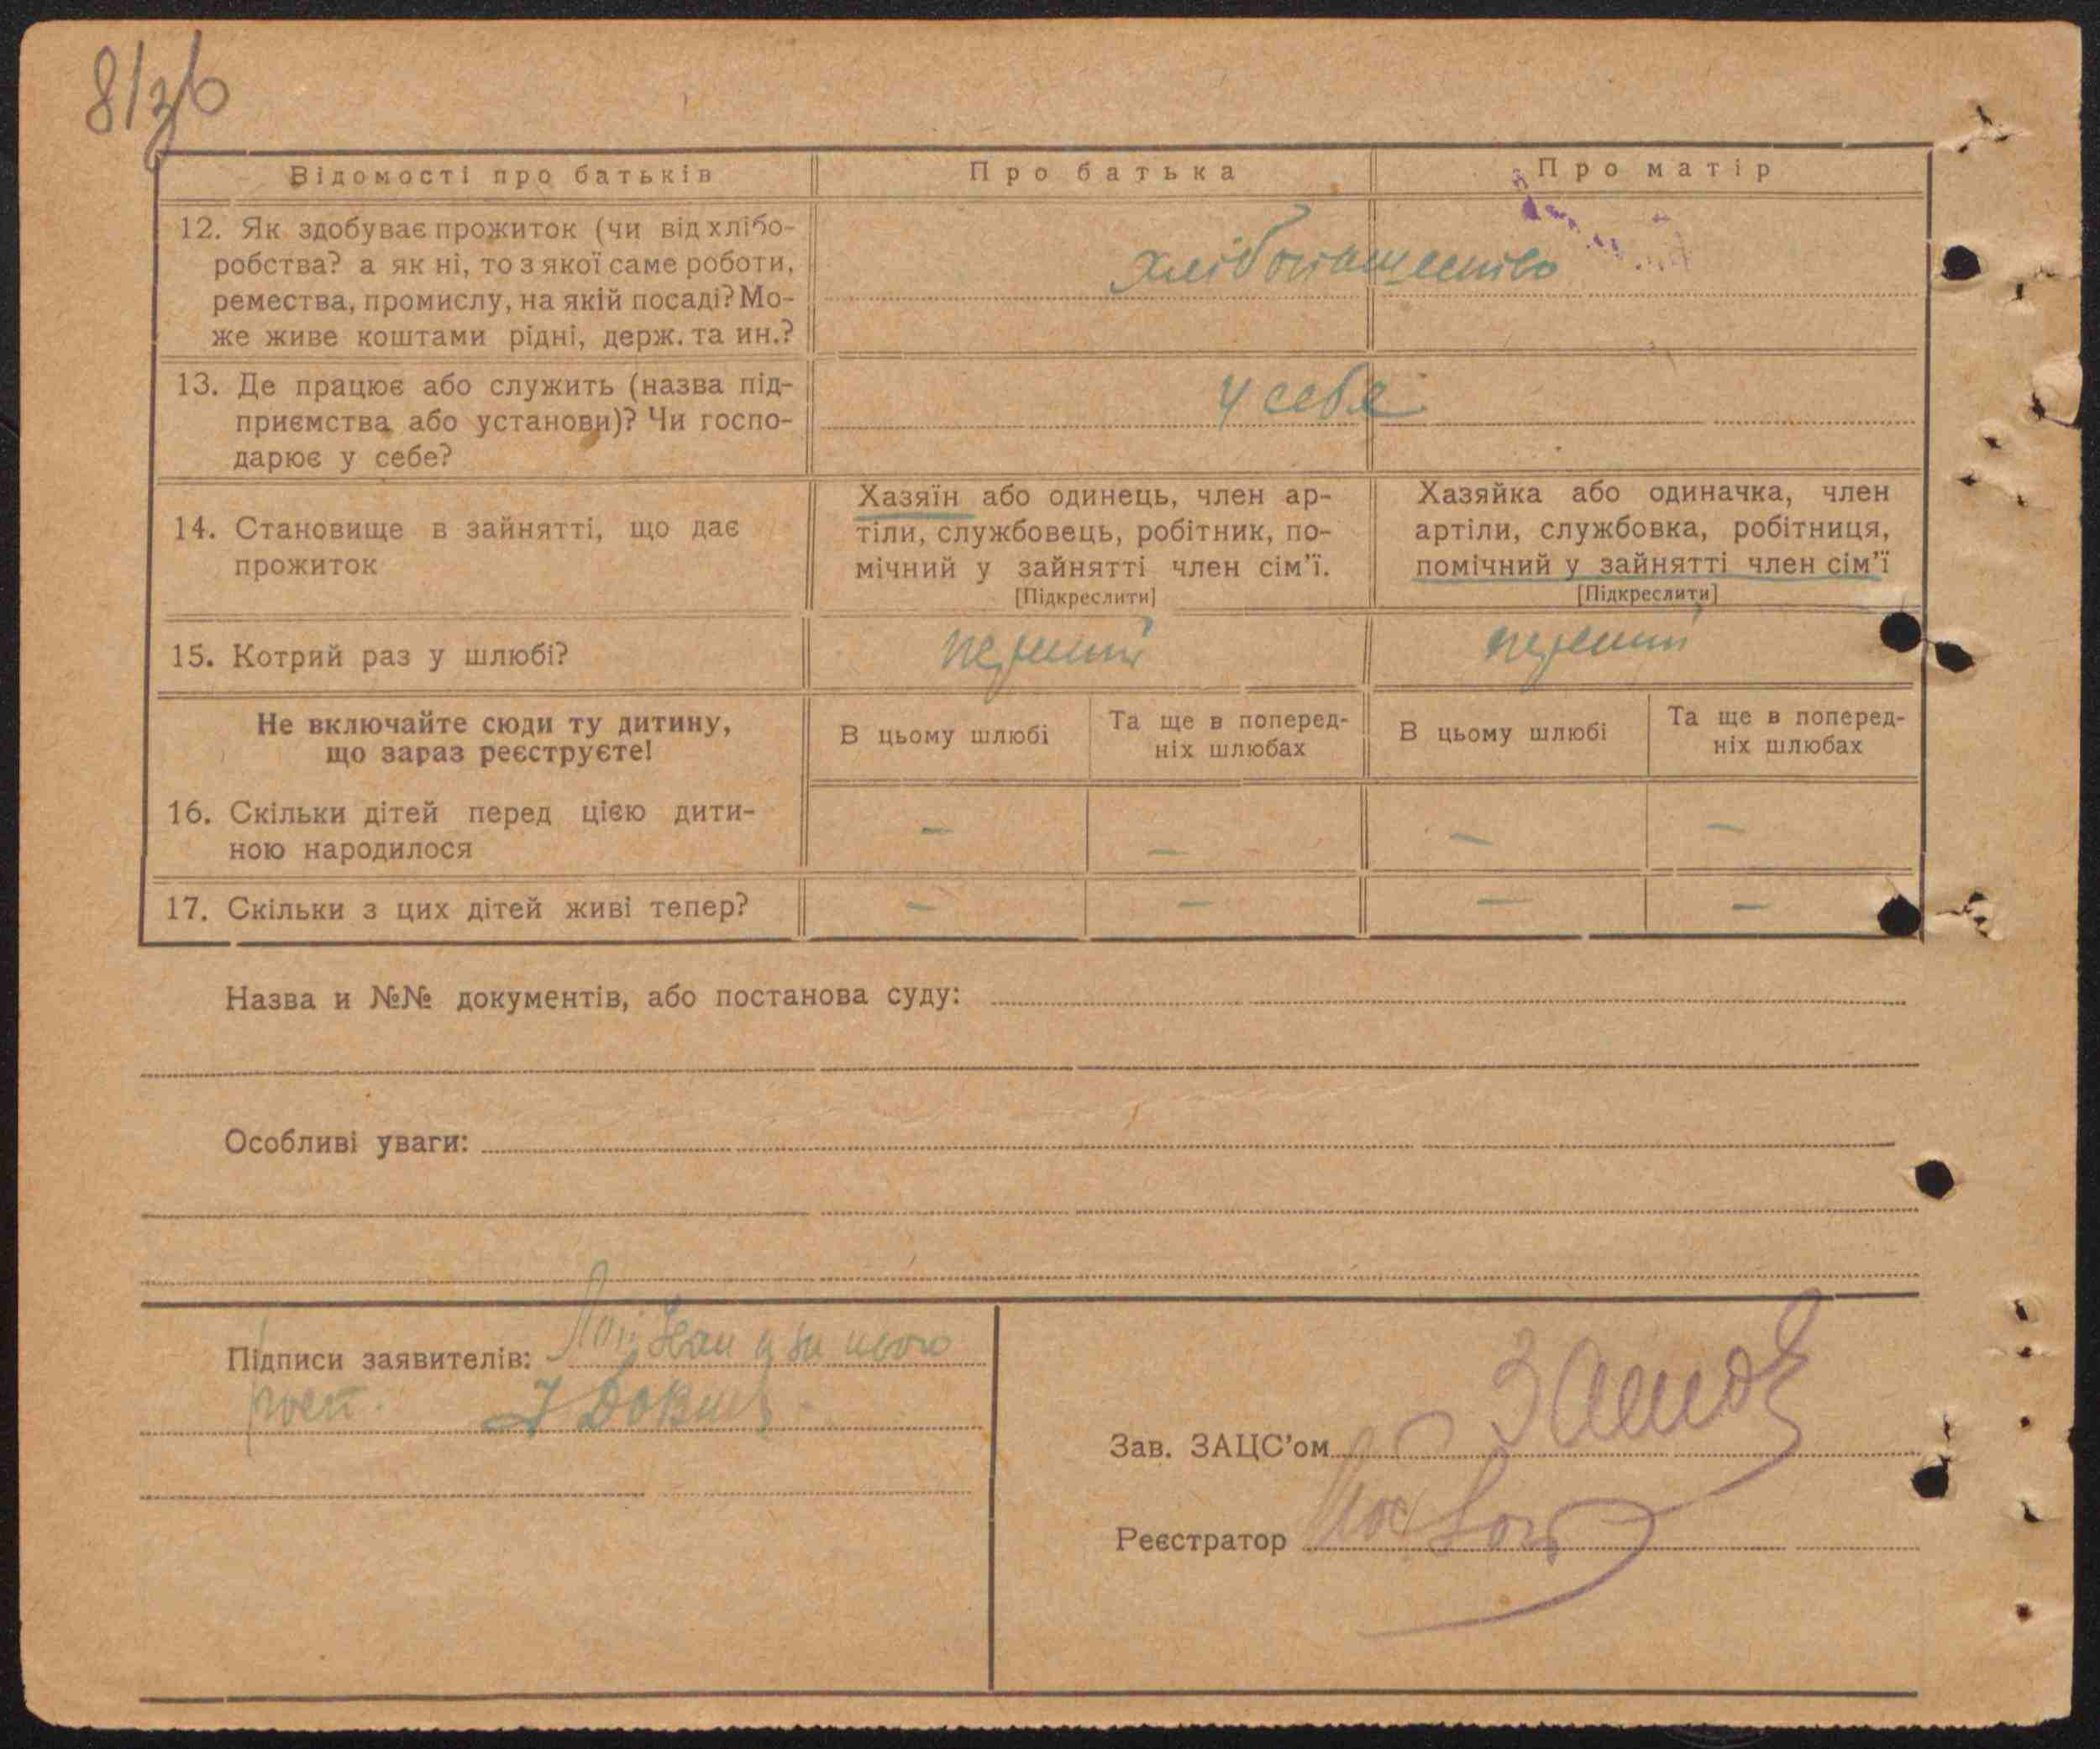 Відомості про батьків
Про батька
Про матір
12. Як здобуває прожиток (чи від хлібо-
робства? а як ні, то з якої саме роботи,
ремества, промислу, на якій посаді? Мо-
же живе коштами рідні, держ. та ин.?
хлібопашество
13. Де працює або служить (назва під-
приємства або установи)? Чи госпо-
дарює у себе?
у себе
14. Становище в зайнятті, що дає
прожиток
Хазяїн або одинець, член ар-
тіли, службовець, робітник, по-
мічний у зайнятті член сім'ї.
[Підкреслити]
Хазяйка або одиначка, член
артіли, службовка, робітниця,
помічний у зайнятті член сім'ї
[Підкреслити]
15. Котрий раз у шлюбі?
перший
перший
Не включайте сюди ту дитину,
що зараз реєструєте!
В цьому шлюбі
Та ще в поперед-
ніх шлюбах
В цьому шлюбі
Та ще в поперед-
ніх шлюбах
16. Скільки дітей перед цією дити-
ною народилося
— — — —
17. Скільки з цих дітей живі тепер?
— — — —
Назва и №№ документів, або постанова суду:
Особливі уваги:
Підписи заявителів:
Зав. ЗАЦС'ом
Реєстратор